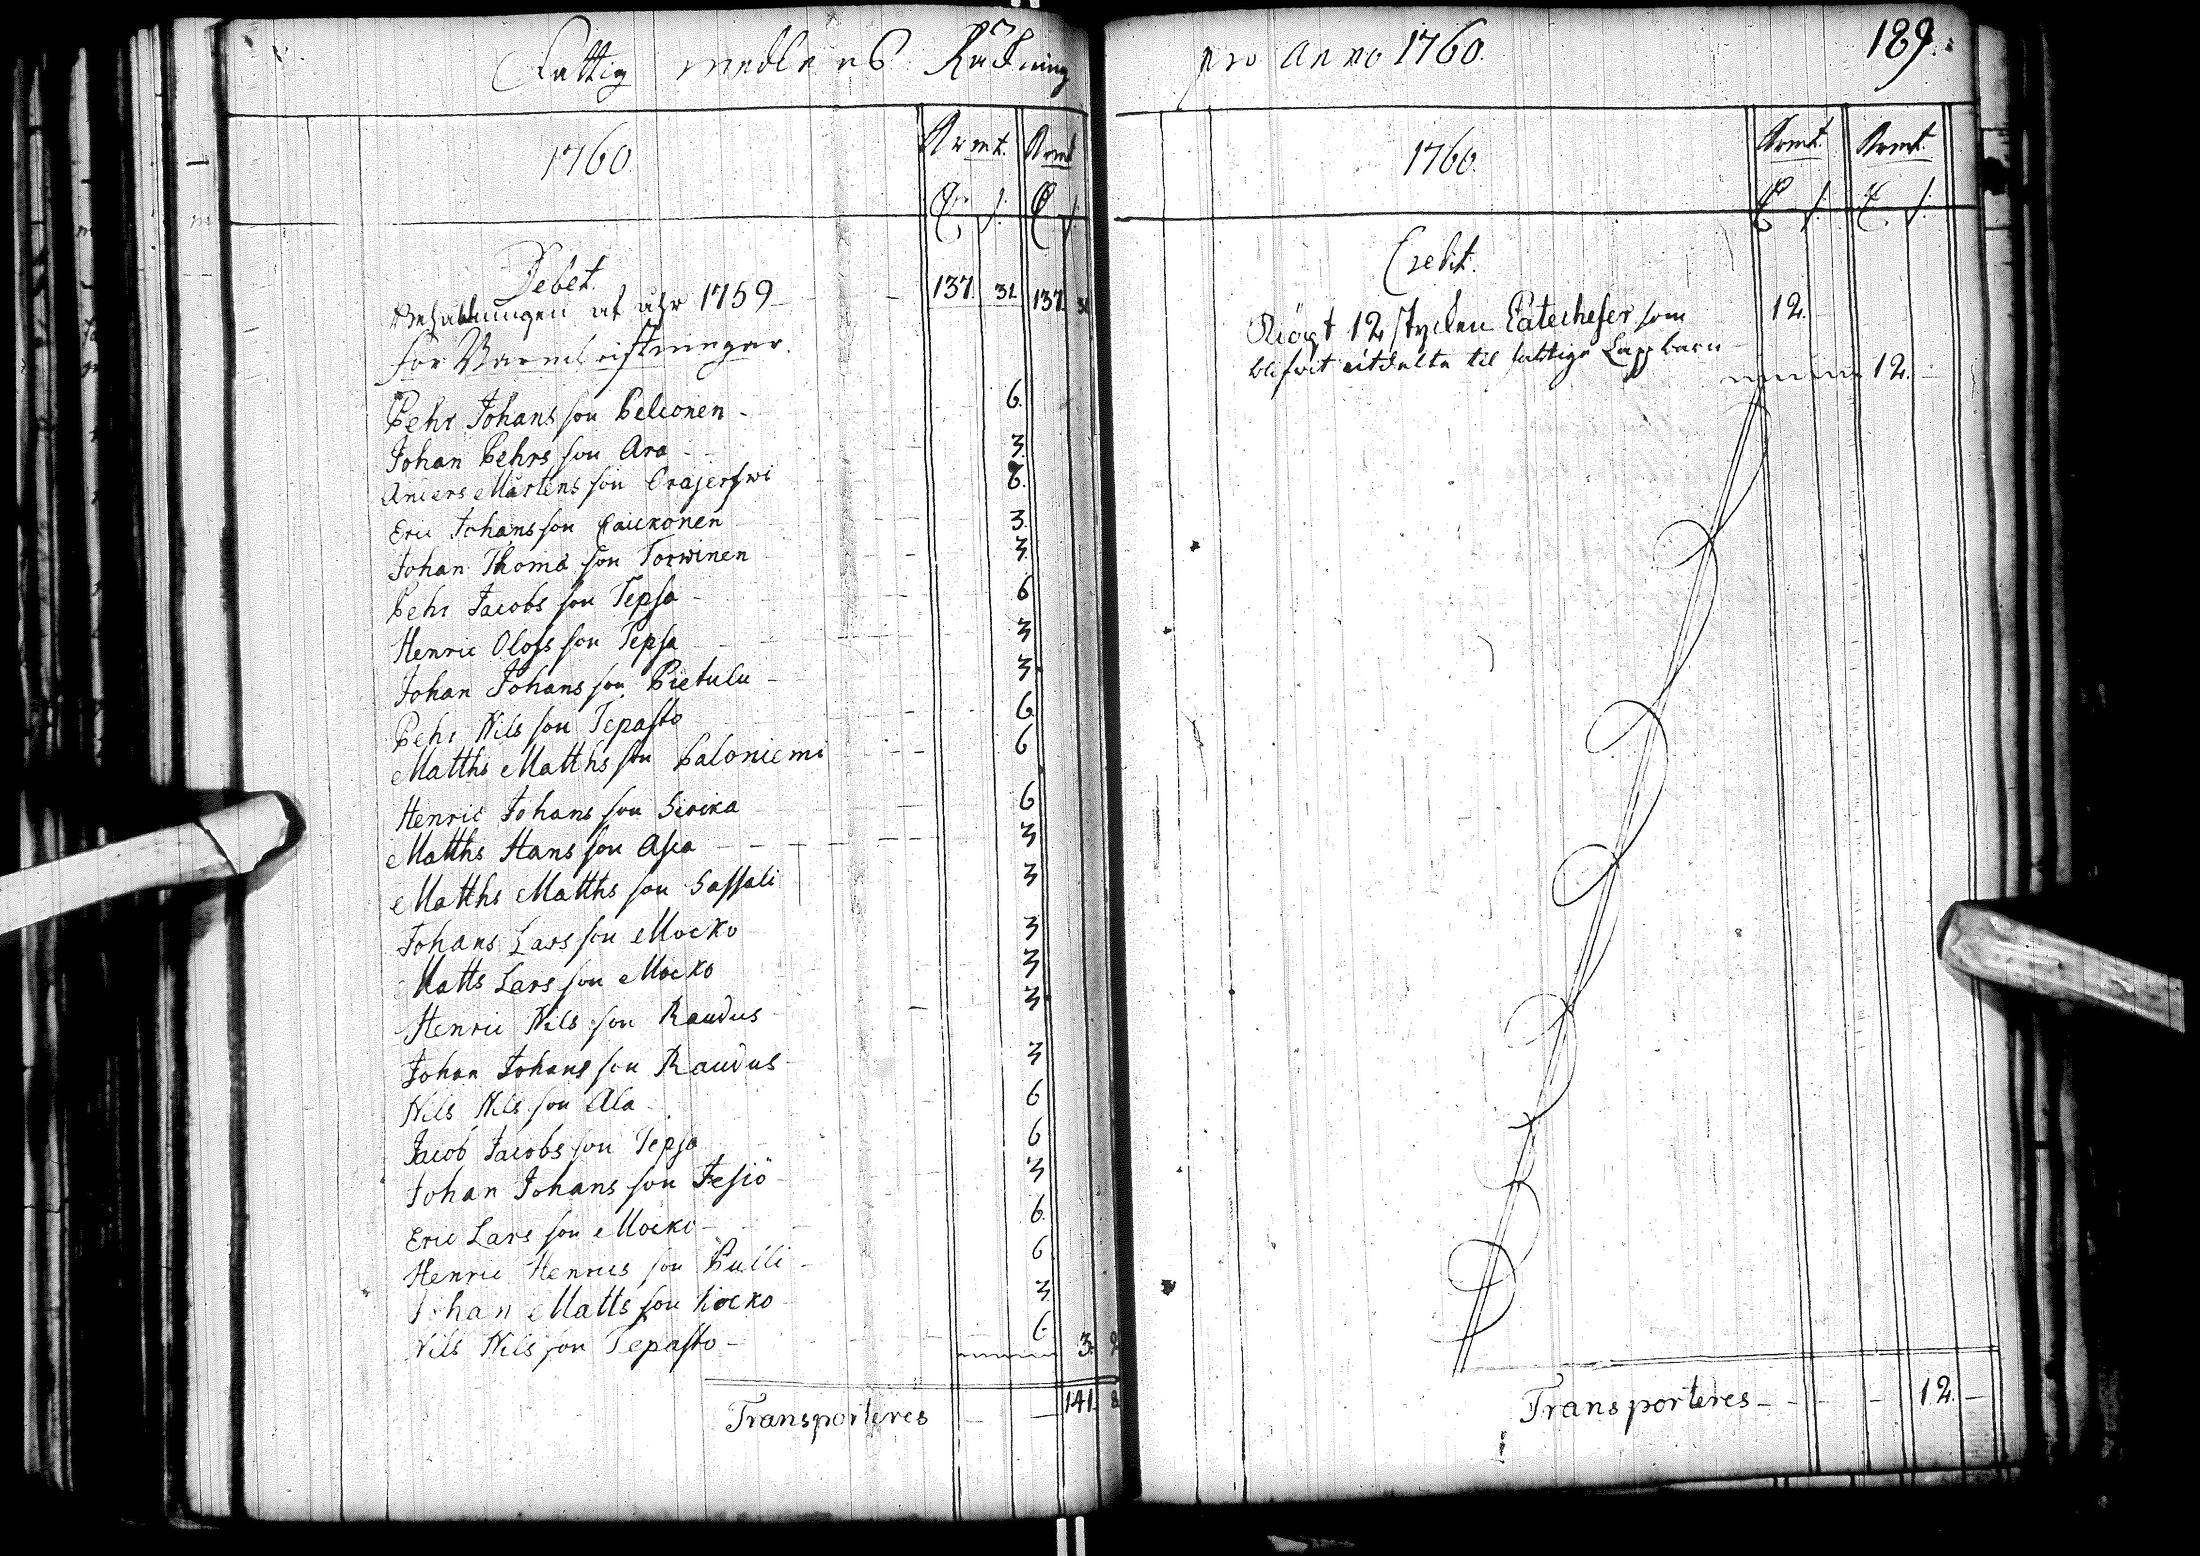 Fattig medlens Räckning
1760
Krmt. Krmt
D. s. D s.
Debet.
Behållningen af åhr 1759 137. 31 137. 31
för Barnchristningar.
Pehr Johans son Pelconen 6.
Johan Pehrs son Ara 3.
Anders Mårtens son Orajerfwi 6.
Eric Johans son Cauckonen 3.
Johan Thomæ son Torwinen 3.
Pehr Jacobs son Tepsa 6
Henric Olofs son Tepsa 3
Johan Johans son Pietulu 3.
Pehr Nils son Tepasto 6.
Matths Matths son Paloniemi 6
Henric Johans son Sirika 6
Matths Hans son Asia 3
Matths Matths son Sassali 3
Johans Lars son Mocko 3
Matts Lars son Mocko 3
Henric Nils son Raudus 3.
Johan Johans son Raudus 3
Nils Nils son Ala 6
Jacob Jacobs son Tepsa 6
Johan Johans son Jesiö 3
Eric Lars son Mocko 6.
Henric Henrics son Pulli 6
Johan Matts son Kocko 3.
Nils Nils son Tepasto 6. 3.
Transporteres 141.
pro Anno 1760. 189.
1760.
Krmt. Krmt.
D. s. D. s.
Credit.
12 stycken Catecheser som 12.
blifwit utdelta til fattiga Lappbarn 12.
Transporteres 12.